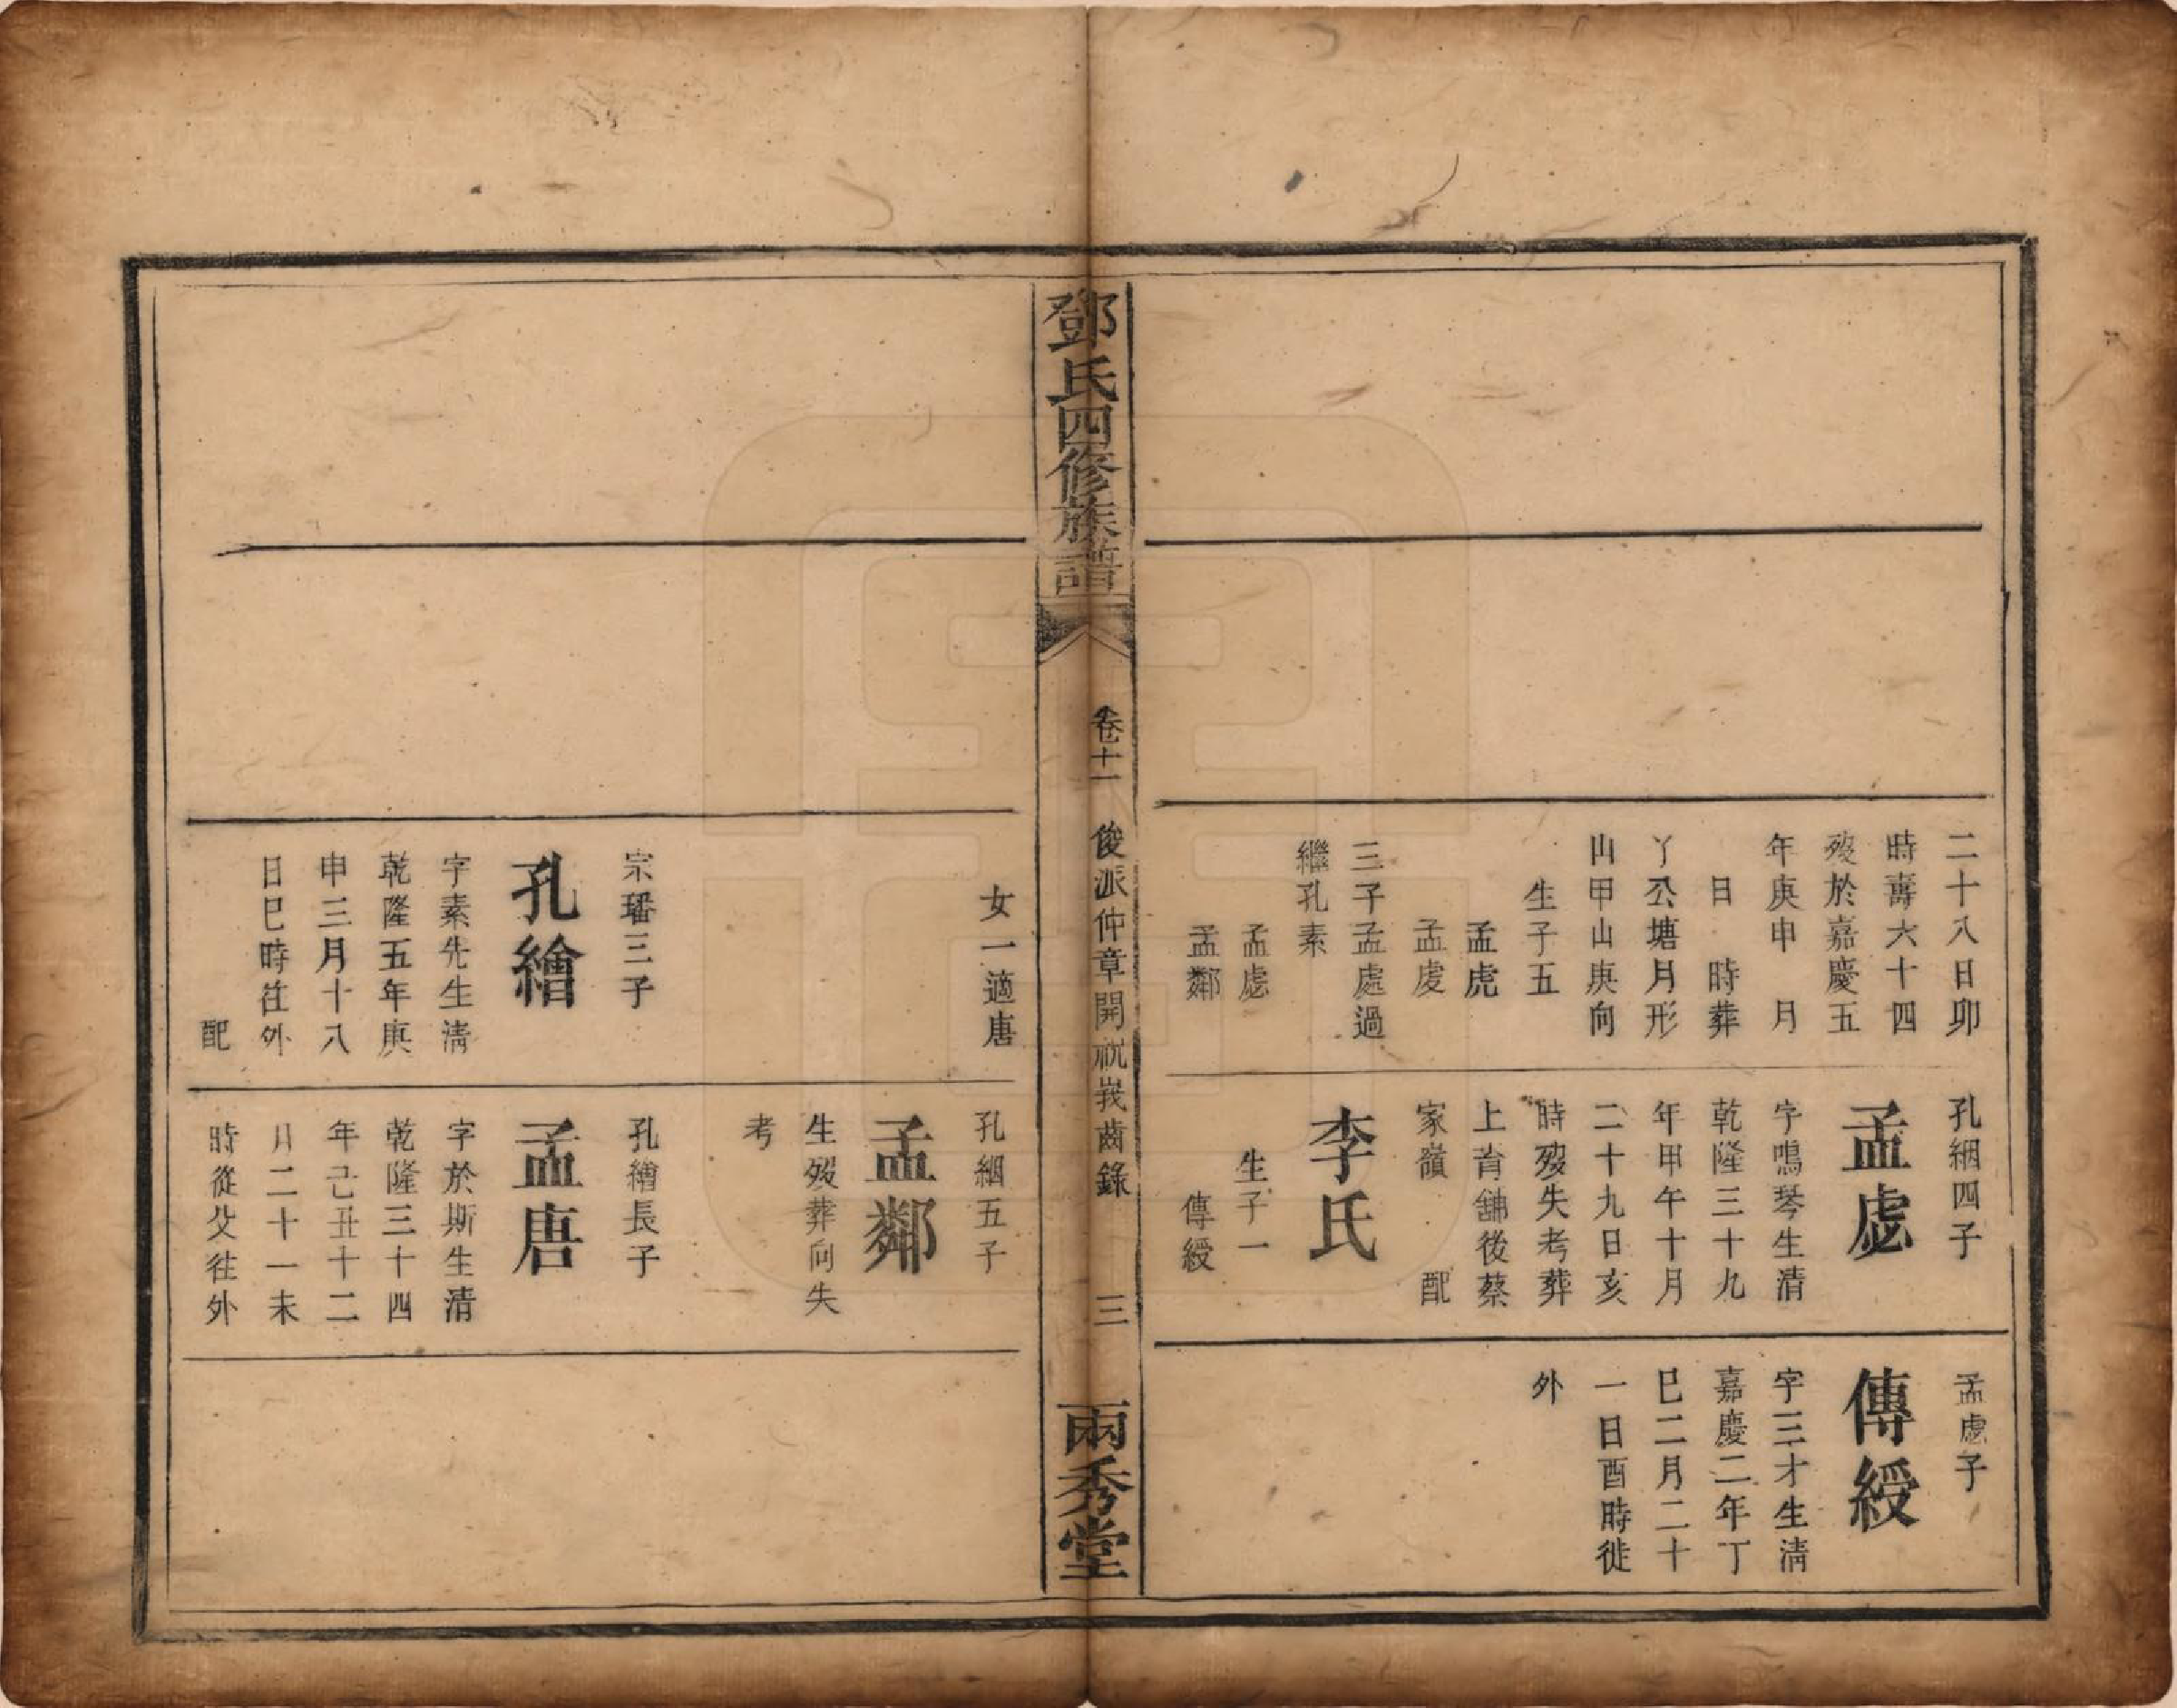 二十八日卯
時壽六十四
歿於嘉慶五
年庚申　月
日　時葬
丫公塘月形
山甲山庚向
生子五
孟虎
孟虔
三子孟處過
繼孔素
孟虙
孟鄰
孔絪四子
孟虙
字鳴琴生清
乾隆三十九
年甲午十月
二十九日亥
時歿失考葬
上肯舖後蔡
家嶺　配
李氏
生子一
傳綬
孟虙子
傳綬
字三才生清
嘉慶二年丁
巳二月二十
一日酉時徙
外
鄧氏四修族譜
卷十一
俊派仲章開祝峩齒錄
三
兩秀堂
女一適唐
宗璠三子
孔繪
字素先生清
乾隆五年庚
申三月十八
日巳時徃外
配
孔絪五子
孟鄰
生歿葬向失
考
孔繪長子
孟唐
字於斯生清
乾隆三十四
年己丑十二
月二十一未
時從父徃外